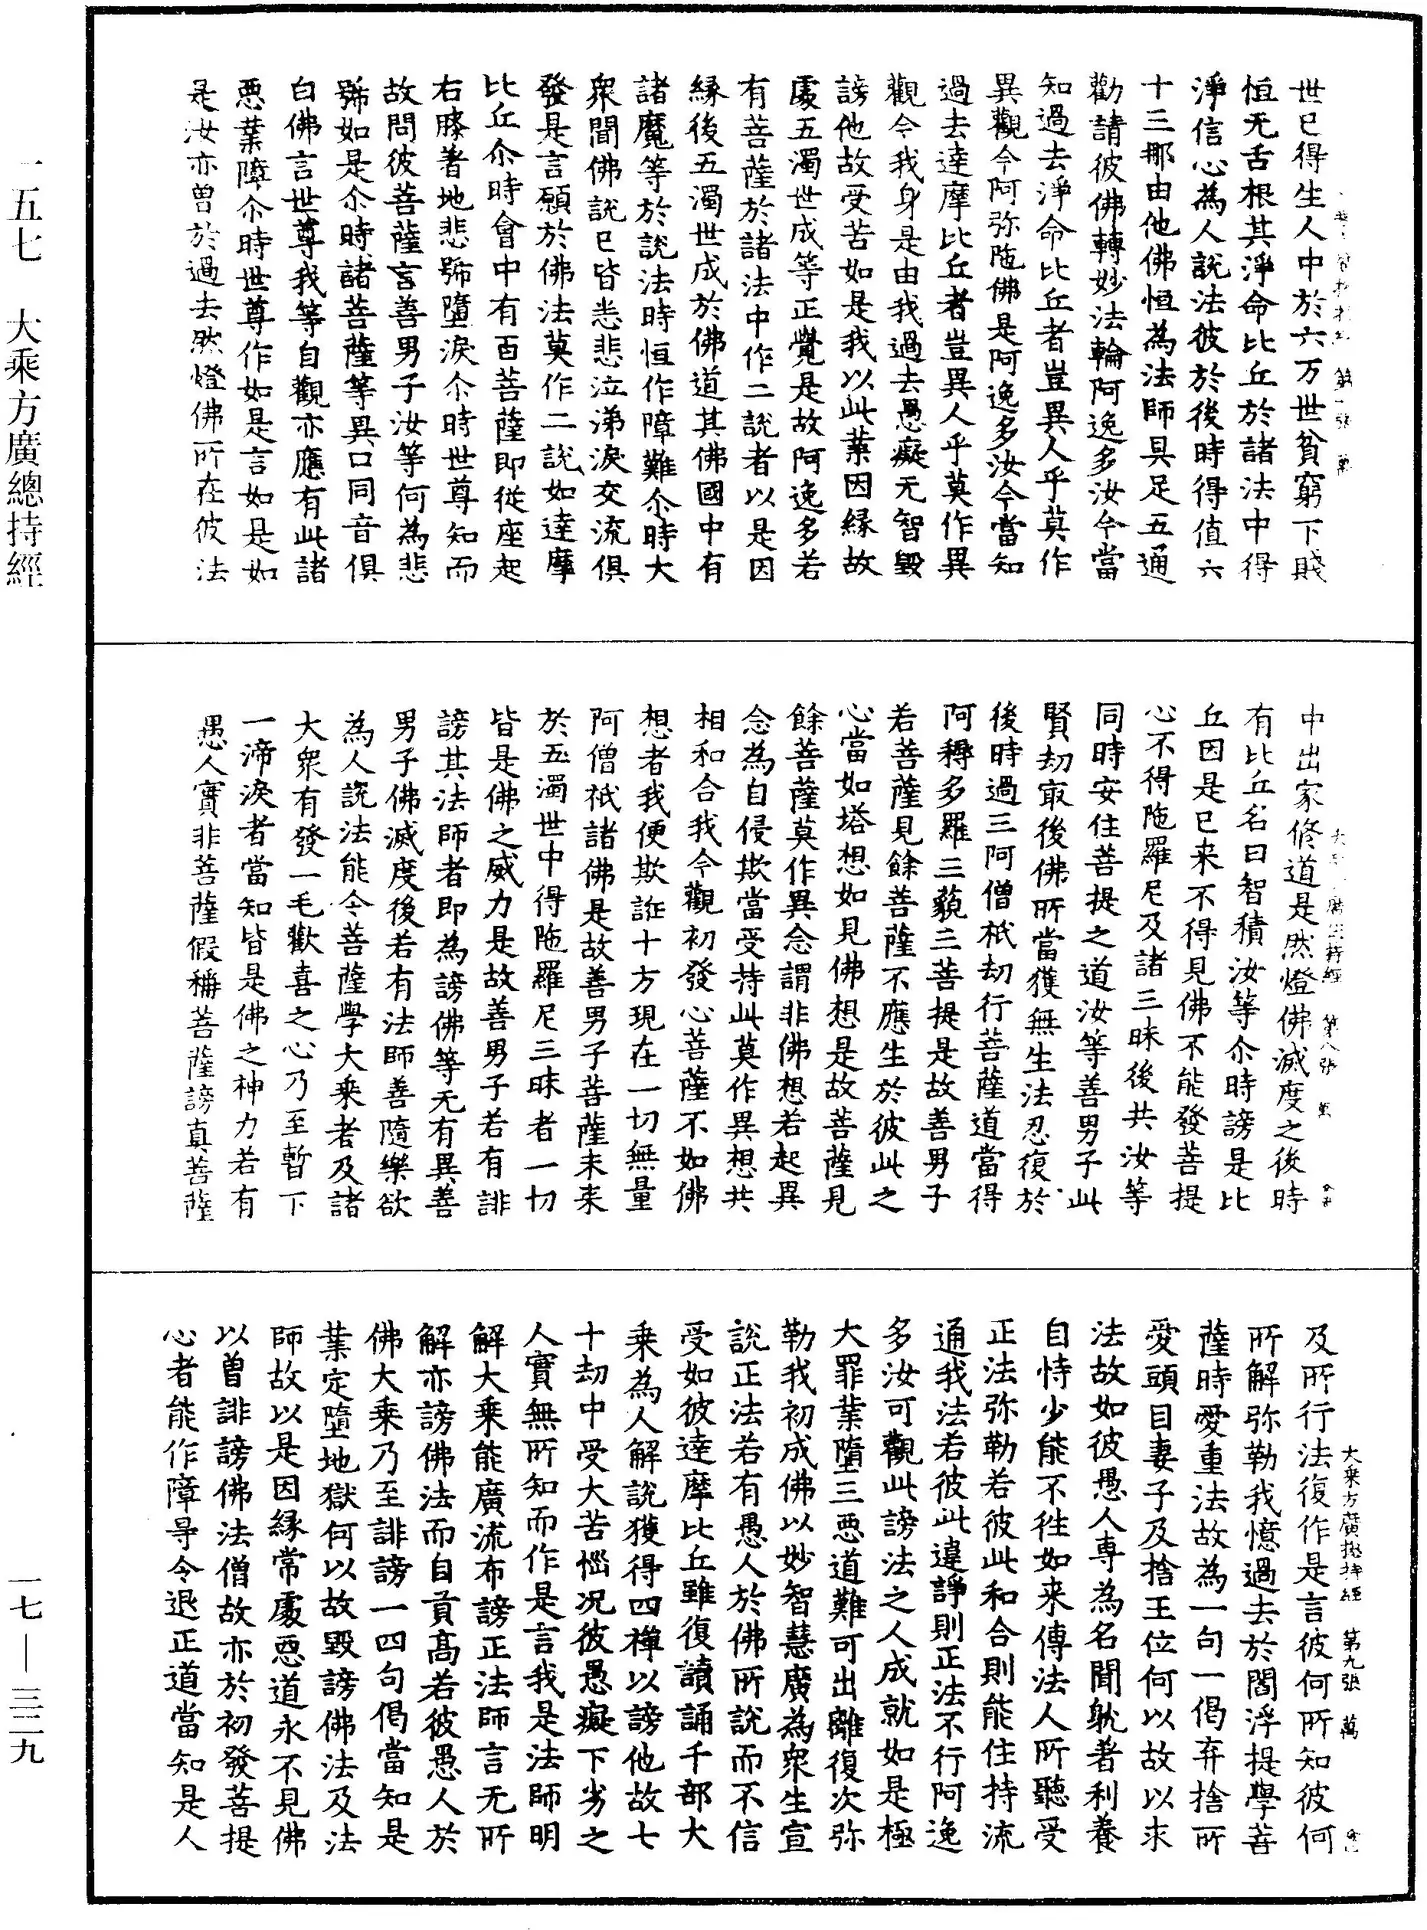 世已得生人中於六万世貧窮下賤
恒无舌根其淨命比丘於諸法中得
淨信心為人說法彼於後時得值六
十三那由他佛恒為法師具足五通
勸請彼佛轉妙法輪阿逸多汝今當
知過去淨命比丘者豈異人乎莫作
異觀今阿弥陁佛是阿逸多汝今當知
過去達摩比丘者豈異人乎莫作異
觀今我身是由我過去愚癡无智毀
謗他故受苦如是我以此業因緣故
處五濁世成等正覺是故阿逸多若
有菩薩於諸法中作二說者以是因
緣後五濁世成於佛道其佛國中有
諸魔等於說法時恒作障難尒時大
衆聞佛說已皆悉悲泣涕淚交流俱
發是言願於佛法莫作二說如達摩
比丘尒時會中有百菩薩即從座起
右膝著地悲號墮淚尒時世尊知而
故問彼菩薩言善男子汝等何為悲
號如是尒時諸菩薩等異口同音俱
白佛言世尊我等自觀亦應有此諸
惡業障尒時世尊作如是言如是如
是汝亦曾於過去然燈佛所在彼法
中出家修道是然燈佛滅度之後時
有比丘名曰智積汝等尒時謗是比
丘因是已来不得見佛不能發菩提
心不得陁羅尼及諸三昧後共汝等
同時安住菩提之道汝等善男子此
賢劫冣後佛所當獲無生法忍復於
後時過三阿僧祇劫行菩薩道當得
阿耨多羅三藐三菩提是故善男子
若菩薩見餘菩薩不應生於彼此之
心當如塔想如見佛想是故菩薩見
餘菩薩莫作異念謂非佛想若起異
念為自侵欺當受持此莫作異想共
相和合我今觀初發心菩薩不如佛
想者我便欺誑十方現在一切無量
阿僧祇諸佛是故善男子菩薩未来
於五濁世中得陁羅尼三昧者一切
皆是佛之威力是故善男子若有誹
謗其法師者即為謗佛等无有異善
男子佛滅度後若有法師善隨樂欲
為人說法能令菩薩學大乘者及諸
大衆有發一毛歡喜之心乃至暫下
一渧淚者當知皆是佛之神力若有
愚人實非菩薩假稱菩薩謗真菩薩
大乘方廣捴持經 第九張 萬
及所行法復作是言彼何所知彼何
所解弥勒我憶過去於閻浮提學菩
薩時愛重法故為一句一偈弃捨所
愛頭目妻子及捨王位何以故以求
法故如彼愚人專為名聞躭著利養
自恃少能不往如来傳法人所聽受
正法弥勒若彼此和合則能住持流
通我法若彼此違諍則正法不行阿逸
多汝可觀此謗法之人成就如是極
大罪業墮三惡道難可出離復次弥
勒我初成佛以妙智慧廣為衆生宣
說正法若有愚人於佛所說而不信
受如彼達摩比丘雖復讀誦千部大
乘為人解說獲得四禪以謗他故七
十劫中受大苦惱況彼愚癡下劣之
人實無所知而作是言我是法師明
解大乘能廣流布謗正法師言无所
解亦謗佛法而自貢高若彼愚人於
佛大乘乃至誹謗一四句偈當知是
業定墮地獄何以故毀謗佛法及法
師故以是因緣常處惡道永不見佛
以曾誹謗佛法僧故亦於初發菩提
心者能作障㝵令退正道當知是人
一五七 大乘方廣總持經
一七—三二九